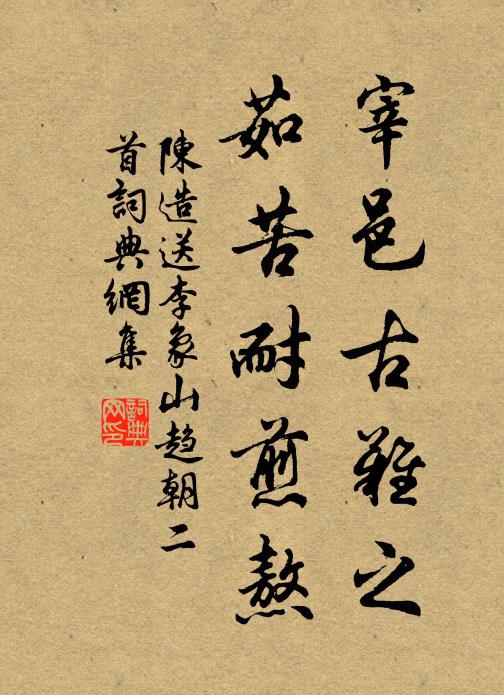 宰邑古難之
茹苦耐煎熬
陳造送李象山趋朝二
首詞典網集
詞典網印